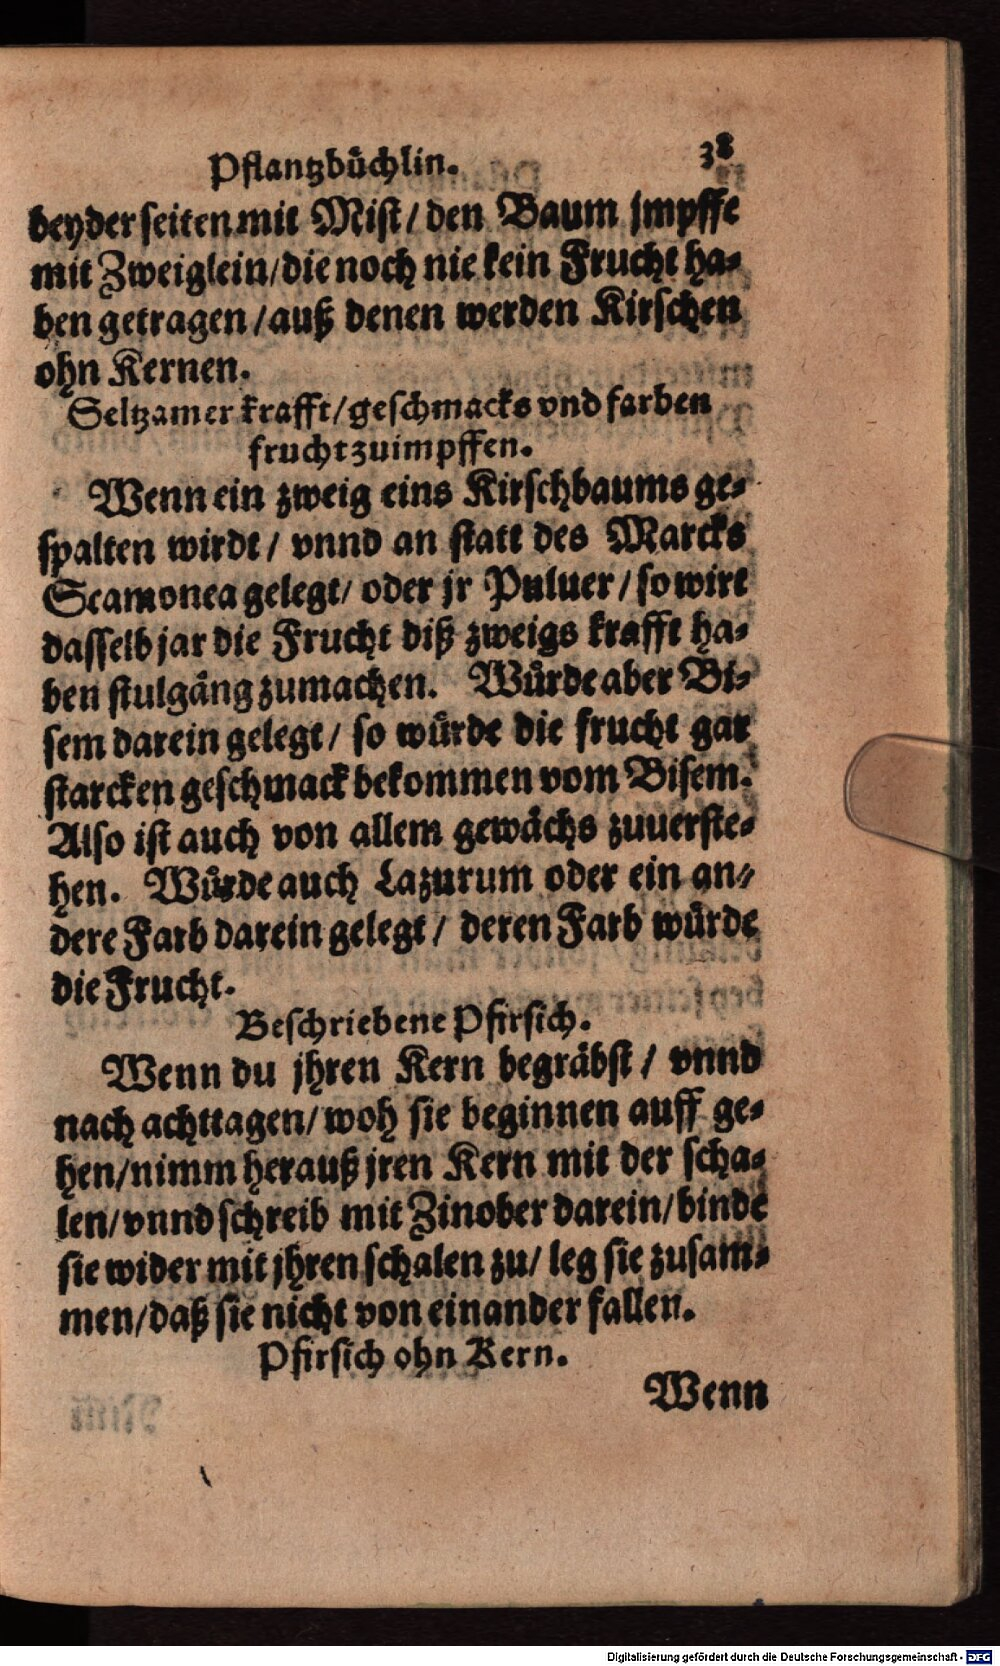 Pflantzbüchlin. 38
beyder seiten mit Mist / den Baum jmpffe
mit Zweiglein / die noch nie kein Frucht ha-
ben getragen / auß denen werden Kirschen
ohn Kernen.
Seltzamer krafft / geschmacks vnd farben
frucht zuimpffen.
Wenn ein zweig eins Kirschbaums ge-
spalten wirdt / vnnd an statt des Marcks
Scamonea gelegt / oder jr Puluer / so wirt
dasselb jar die Frucht diß zweigs krafft ha-
ben stulgäng zumachen. Würde aber Bi-
sem darein gelegt / so würde die frucht gar
starcken geschmack bekommen vom Bisem.
Also ist auch von allem gewächs zuuerste-
hen. Würde auch Lazurum oder ein an-
dere Farb darein gelegt / deren Farb würde
die Frucht.
Beschriebene Pfirsich.
Wenn du jhren Kern begräbst / vnnd
nach achttagen / woh sie beginnen auff ge-
hen / nimm herauß jren Kern mit der scha-
len / vnnd schreib mit Zinober darein / binde
sie wider mit jhren schalen zu / leg sie zusam-
men / daß sie nicht von einander fallen.
Pfirsich ohn Kern.
Wenn
Digitalisierung gefördert durch die Deutsche Forschungsgemeinschaft - DFG